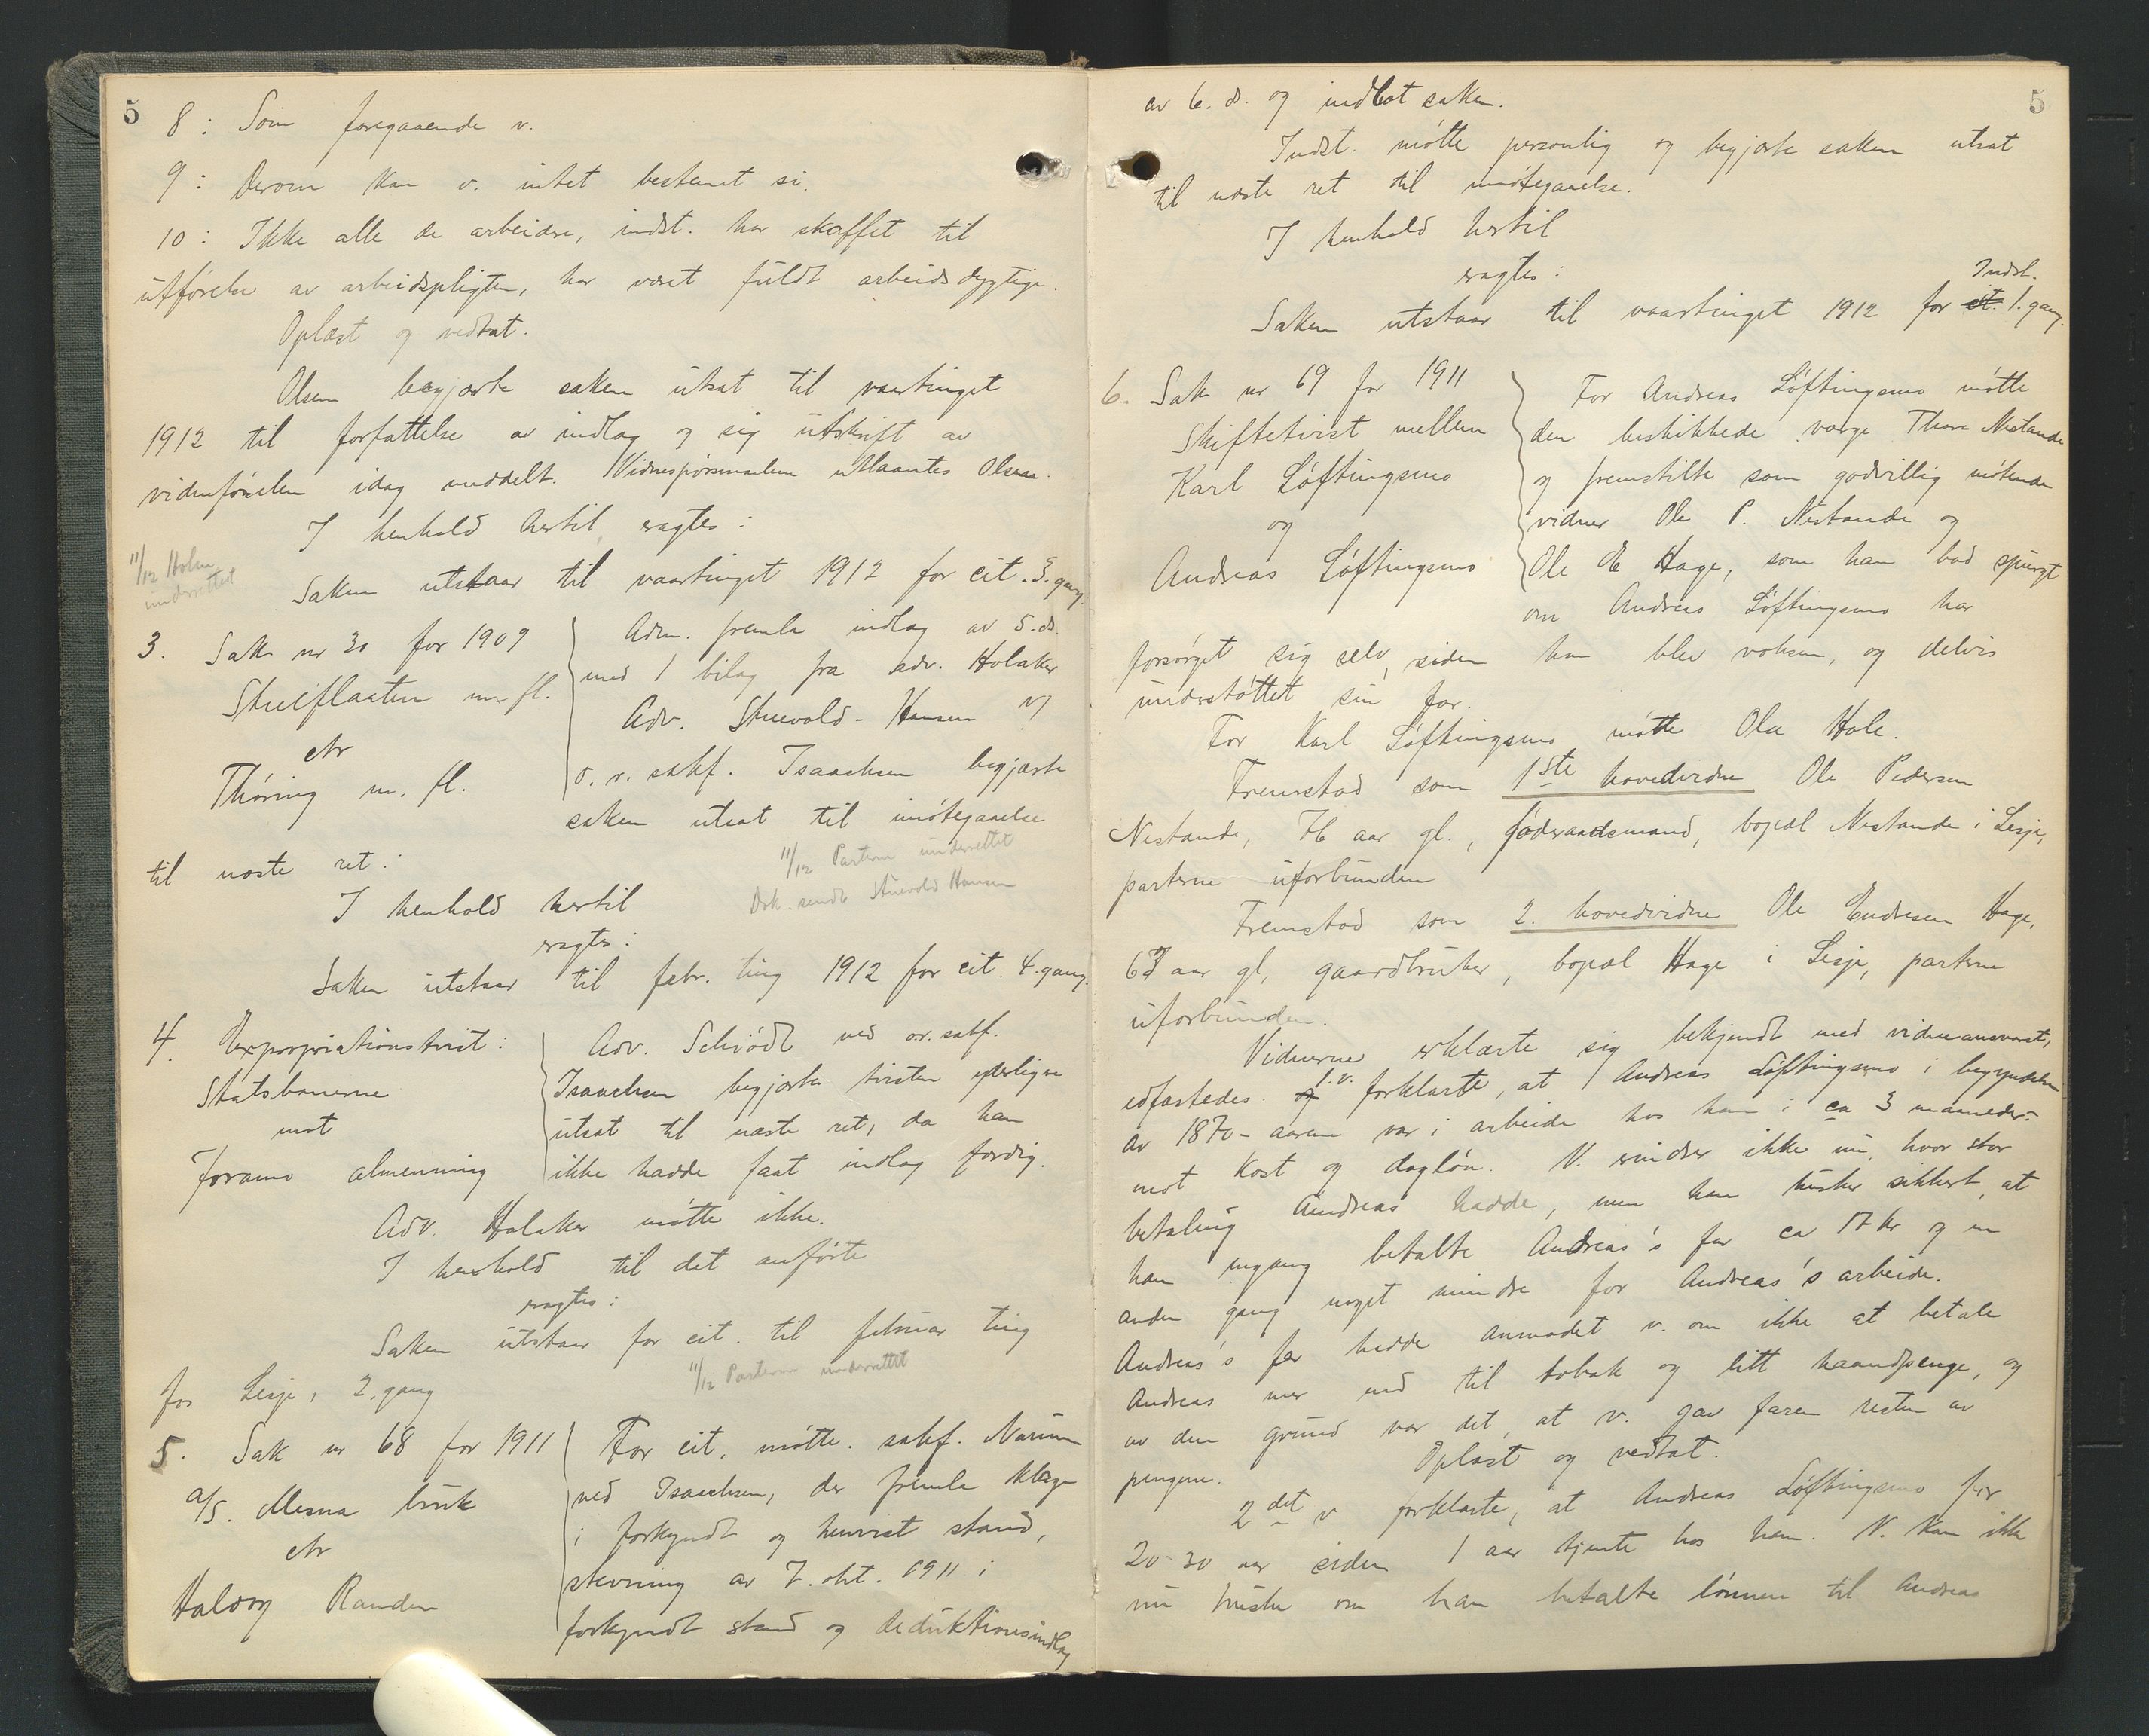 5
8: Som foregaaende v.
9: Derom kan v. intet bestemt si.
10: Ikke alle de arbeidere, indst. har skaffet til
utførelse av arbeidspligten, har været fuldt arbeidsdygtige.
Oplæst og vedtat.
Olsen begjærte saken utsat til vaartinget
1912 til forfattelse av indlæg og sig utskrift av
vidneførselen idag meddelt. Vidnespørsmaalene utlaantes Olsen.
I henhold hertil eragtes:
11/12 Holm
underrettet
Saken utstaar til vaartinget 1912 for cit. 3. gang.
3. Sak nr 30 for 1909
Stueflaaten m. fl.
ctr
Thøring m. fl.
Adm. fremla indlæg av 5. ds.
med 1 bilag fra adv. Holaker
Adv. Struevold-Hansen v/
o.r. sakf. Isaachsen begjærte
saken utsat til imøtegaaelse
til næste ret:
11/12 Parterne underrettet
Dok. sendt Struevold Hansen
I henhold hertil
eragtes:
Saken utstaar til febr. ting 1912 for cit. 4. gang.
4. Expropriationstvist:
Statsbanerne
mot
Joramo almenning
Adv. Schiødt ved or. sakf.
Isaachsen begjærte tvisten yderligere
utsat til næste ret, da han
ikke hadde faat indlæg færdig.
Adv. Holaker møtte ikke.
I henhold til det anførte
eragtes:
Saken utstaar for cit. til februar ting
for Lesje, 2. gang
11/12 Parterne underrettet
5. Sak nr 68 for 1911
a/s. Mesna bruk
ctr
Halvor Randen
For cit. møtte sakf. Narum
ved Isaachsen, der fremla klage
i forkyndt og henvist stand,
stevning av 7. okt. 1911 i
forkyndt stand og deduktionsindlæg
5
av 6. ds. og indlot saken.
Indst. møtte personlig og begjærte saken utsat
til næste ret til imøtegaaelse.
I henhold hertil
eragtes:
Saken utstaar til vaartinget 1912 for cit. Indst. 1. gang.
6. Sak nr 69 for 1911
Skiftetvist mellem
Karl Løftingsmo
og
Andreas Løftingsmo
For Andreas Løftingsmo møtte
den beskikkede værge Thore Nestande
og fremstilte som godvillig møtende
vidner Ole P. Nestande og
Ole E Hage, som han bad spurgt
om Andreas Løftingsmo har
forsørget sig selv, siden han blev voksen, og delvis
understøttet sin far.
For Karl Løftingsmo møtte Ola Hole.
Fremstod som 1ste hovedvidne Ole Pedersen
Nestande, 76 aar gl., føderaadsmand, bopæl Nestande i Lesje,
parterne uforbunden
Fremstod som 2. hovedvidne Ole Endresen Hage,
63 aar gl, gaardbruker, bopæl Hage i Lesje, parterne
uforbunden.
Vidnerne erklærte sig bekjendt med vidneansvaret,
edfæstedes. og 1. v. forklarte, at Andreas Løftingsmo i begyndelsen
av 1870-aarene var i arbeide hos ham i ca 3 maaneder
mot kost og dagløn. V. erindrer ikke nu, hvor stor
betaling Andreas hadde, men han husker sikkert, at
han engang betalte Andreas's far ca 17 kr og en
anden gang noget mindre for Andreas's arbeide.
Andreas's far hadde anmodet v. om ikke at betale
Andreas mer end til tobak og litt haandpenge, og
av den grund var det, at v. gav faren resten av
pengene. Oplæst og vedtat.
2det v forklarte, at Andreas Løftingsmo for
20-30 aar siden 1 aar tjente hos ham. V. kan ikke
nu huske om han betalte lønnen til Andreas